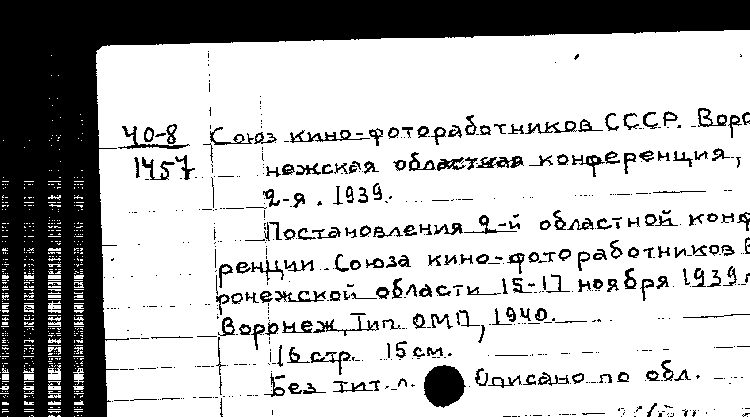 40-8 Союз кино-фотоработников СССР. Воро
1457 нежская областная конференция,
2-я. 1939.
Постановления 2-й областной конф
ренции Союза кино-фотоработников В
ронежской области 15-17 ноября 1939 г
Воронеж, Тип. ОМП, 1940.
16 стр. 15 см.
Без тит. л. Описано по обл.